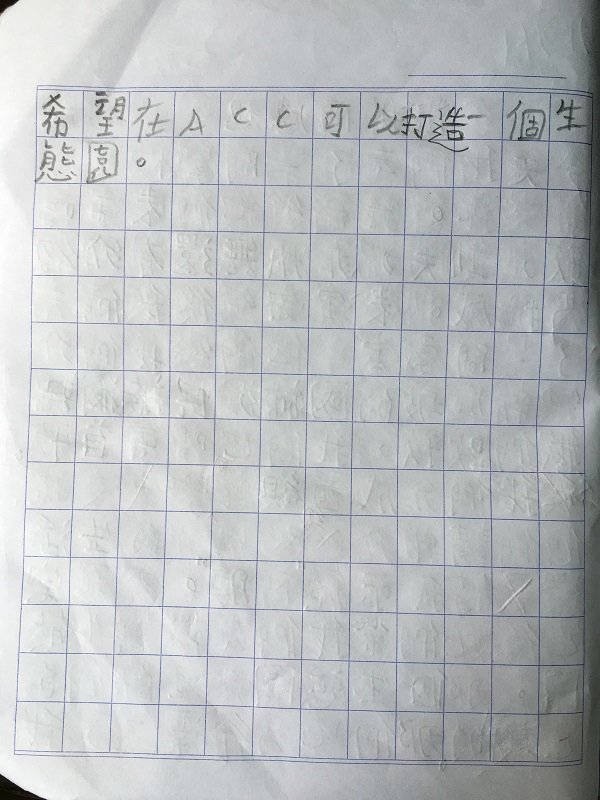 希望在ACC可以打造一個生
態園。